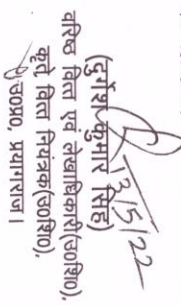 13/5/22
(दुर्गेश कुमार सिंह)
वरिष्ठ वित्त एवं लेखाधिकारी(उ०शि०),
कृते वित्त नियंत्रक(उ०शि०),
उ०प्र०, प्रयागराज।